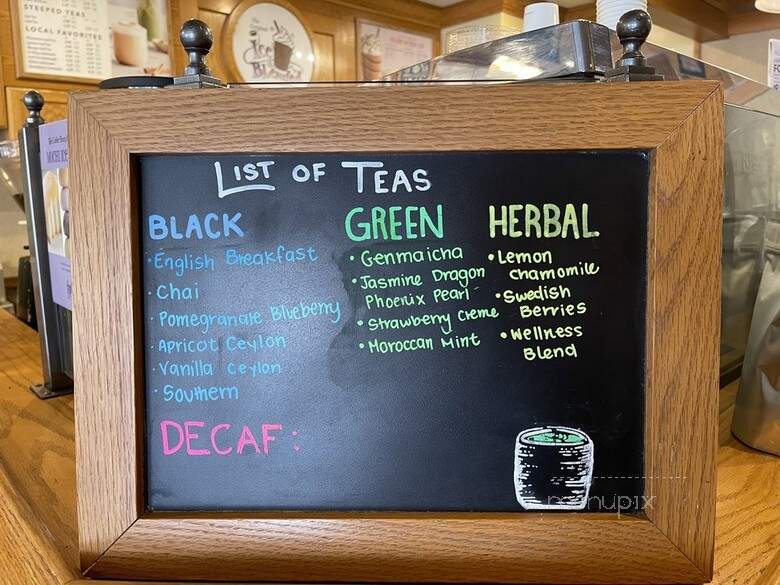 STEEPED TEAS
LOCAL FAVORITES
LIST OF TEAS
BLACK
• English Breakfast
• Chai
• Pomegranate Blueberry
• Apricot Ceylon
• Vanilla Ceylon
• Southern
GREEN
• Genmaicha
• Jasmine Dragon
Phoenix Pearl
• Strawberry Creme
• Moroccan Mint
HERBAL.
• Lemon
Chamomile
• Swedish
Berries
• Wellness
Blend
DECAF:
menupix